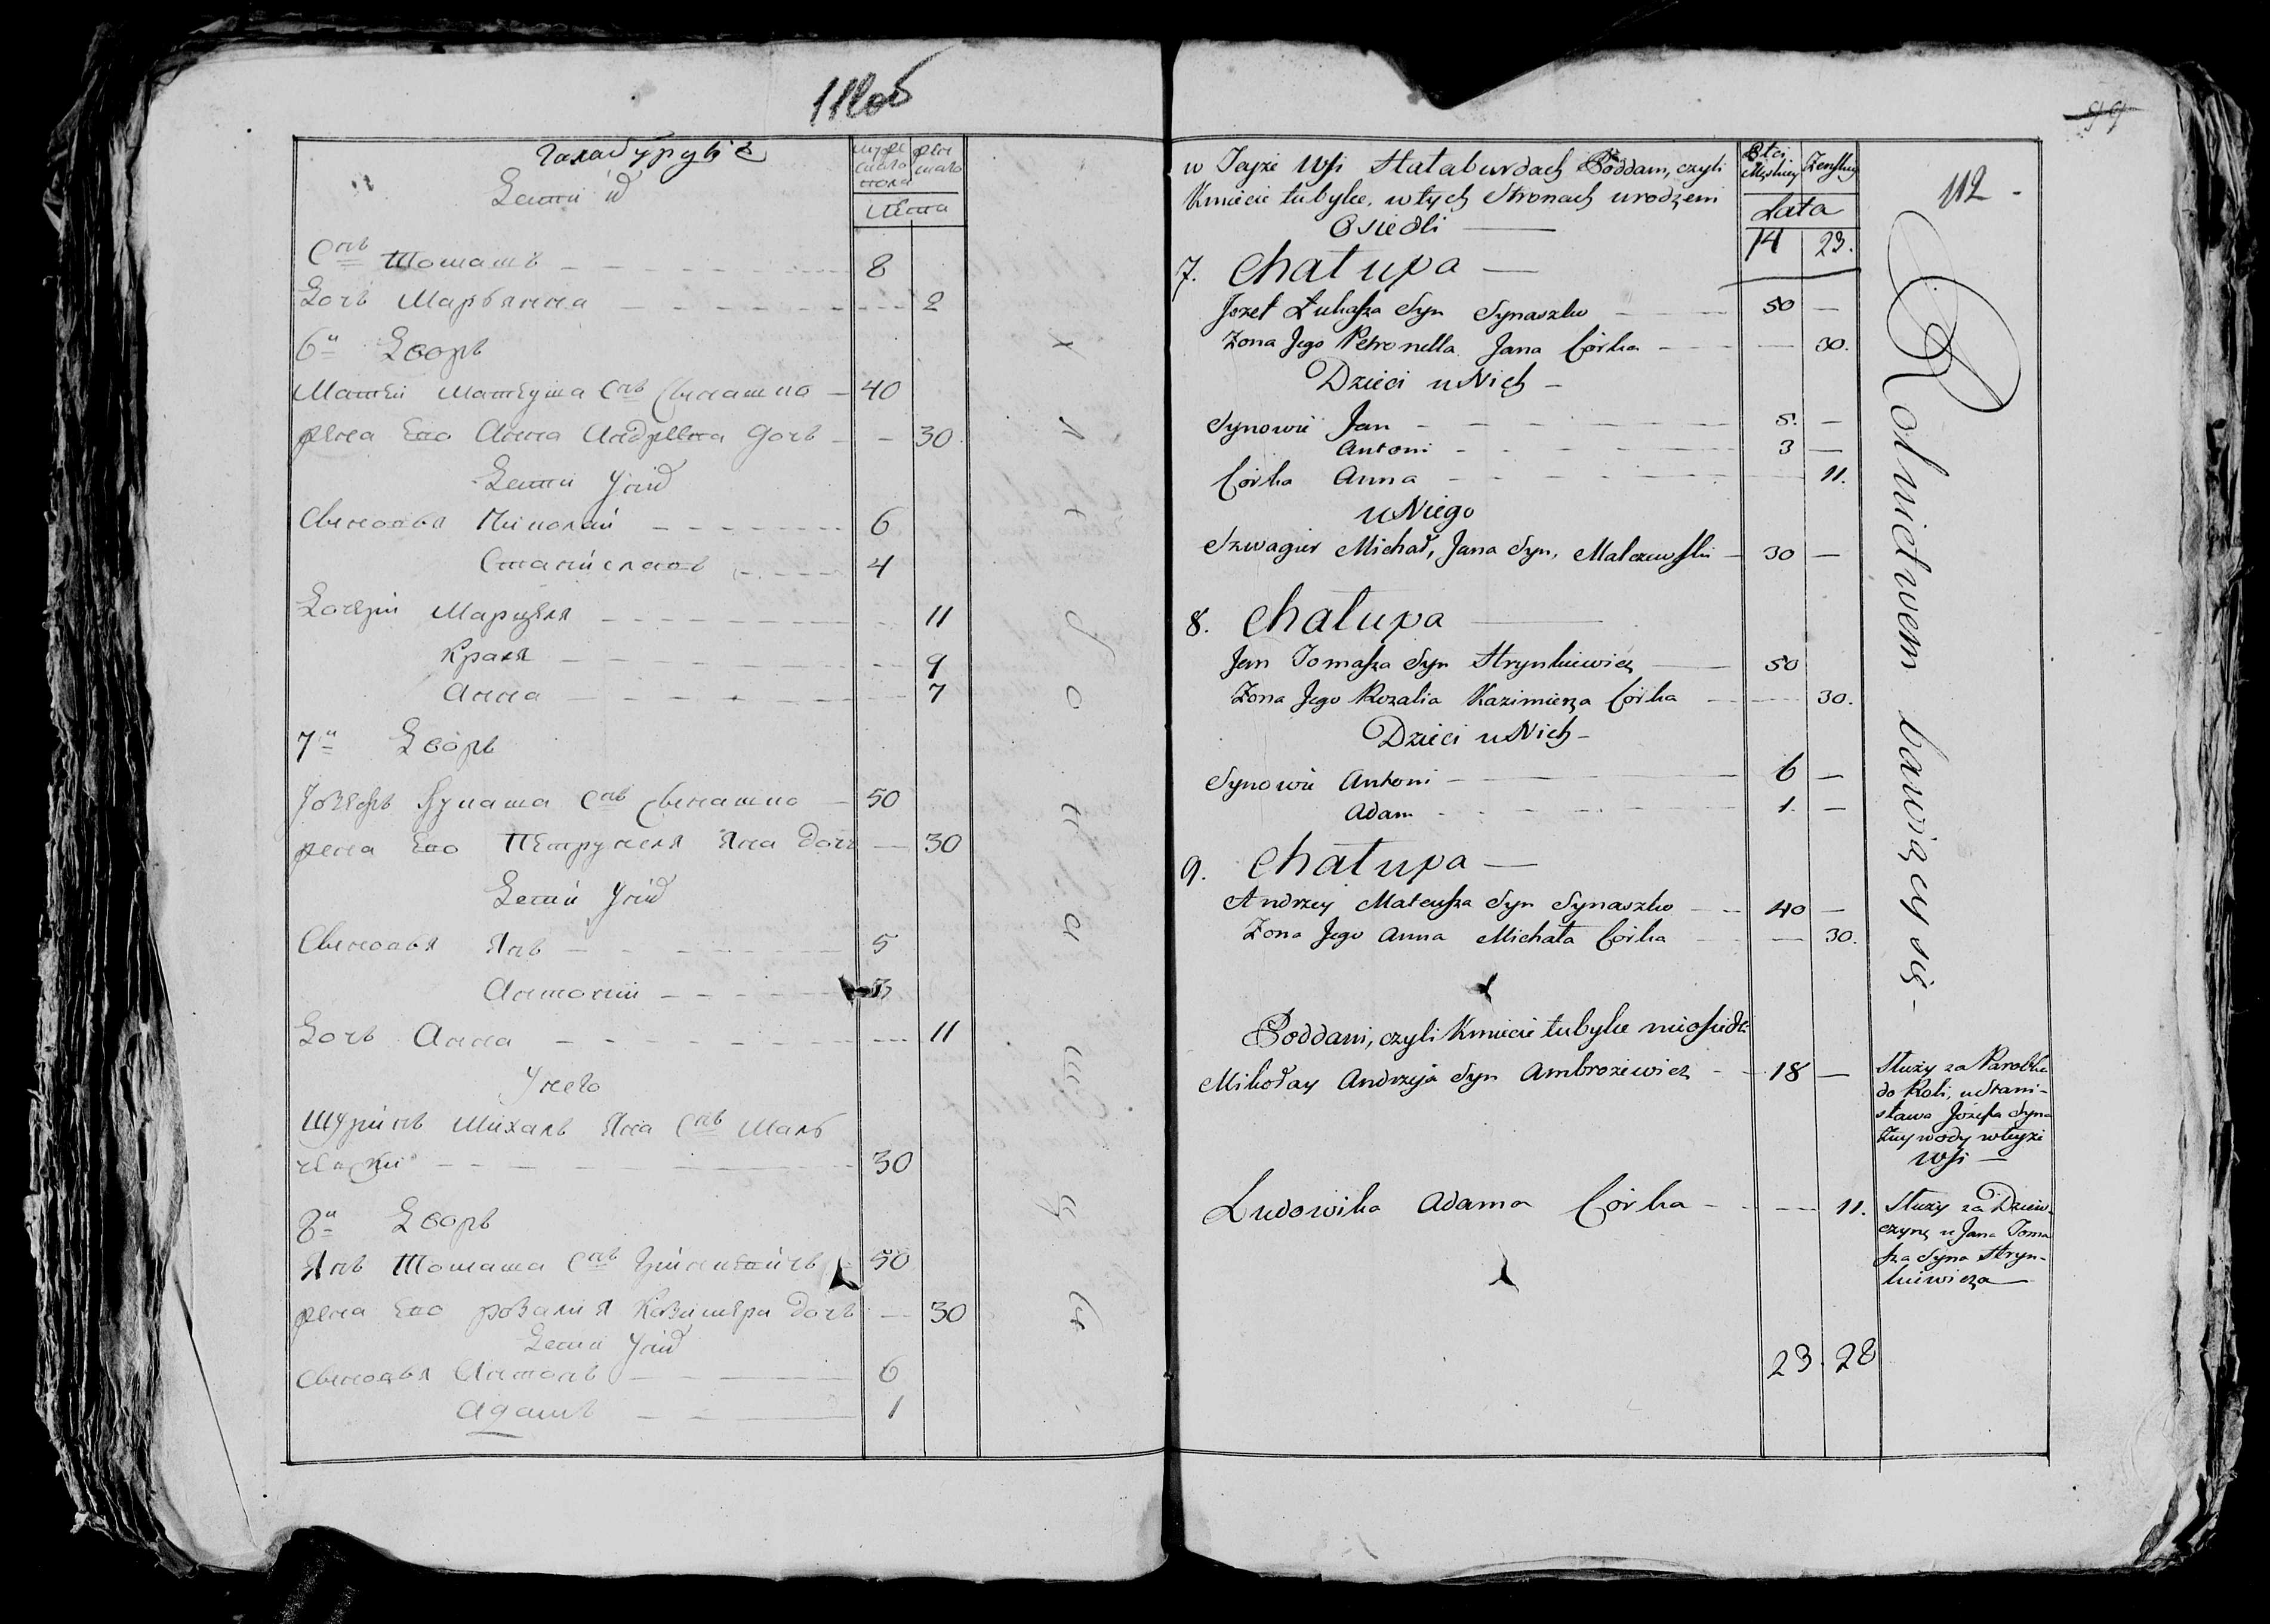 112об
Галабурды
Дети их
Снъ Томашъ 8
Дочь Марьянна 2
6й Дворъ
Матей Матеуша Снъ Сынашко 40
жена Его Анна Андрея дочь 30
Дети У них
Сыновья Миколай 6
Станиславъ 4
Дочери Марцеля 11
9
Анна 7
7й Дворъ
Іозефъ Лукаша Снъ Сынашко 50
жена Его Петрунеля Яна Дочь 30
Дети У них
Сыновья Янъ 5
Антоний 3
Дочь Анна 11
У него
Шуринъ Михалъ Яна Снъ Маль
чевски 30
8й Дворъ
Янъ Томаша Снъ 50
жена Его розалия Казимера Дочь 30
Дети У них
Сыновья Антонъ 6
Адамъ 1
99
112
w Teyże Wsi Hałaburdach Poddani, czyli
Kmiecie tubylce, w tych Stronach urodzeni
Osiedli
Płci Męskiey Żenskiey
Lata
14 23.
7. Chałupa
Jozef Łukasza Syn Synaszko 50 —
Żona Jego Petronella Jana Córka — 30.
Dzieci u Nich
Synowie Jan 5. —
Antoni 3 —
Córka Anna 11.
u Niego
Szwagier Michał, Jana Syn, Malczewski 30 —
8. Chałupa
Jan Tomasza Syn Hrynkiewicz 50
Żona Jego Rozalia Kazimierza Córka 30.
Dzieci u Nich
Synowie Antoni 6 —
Adam 1. —
9. Chałupa
Andrzey Mateusza Syn Synaszko 40 —
Żona Jego Anna Michała Córka — 30.
Poddani, czyli Kmiecie tubylce nieosiedli
Mikołay Andrzeja Syn Ambrożewicz 18 —
Służy za Parobka
do Roli, u Stani-
sława Józefa Syna
Żywody w teyże
Wsi —
Ludowika Adama Córka 11.
Służy za Dziew-
czynę u Jana Toma
sza Syna Hryn-
kiewicza
23. 28
Rolnictwem bawiący się